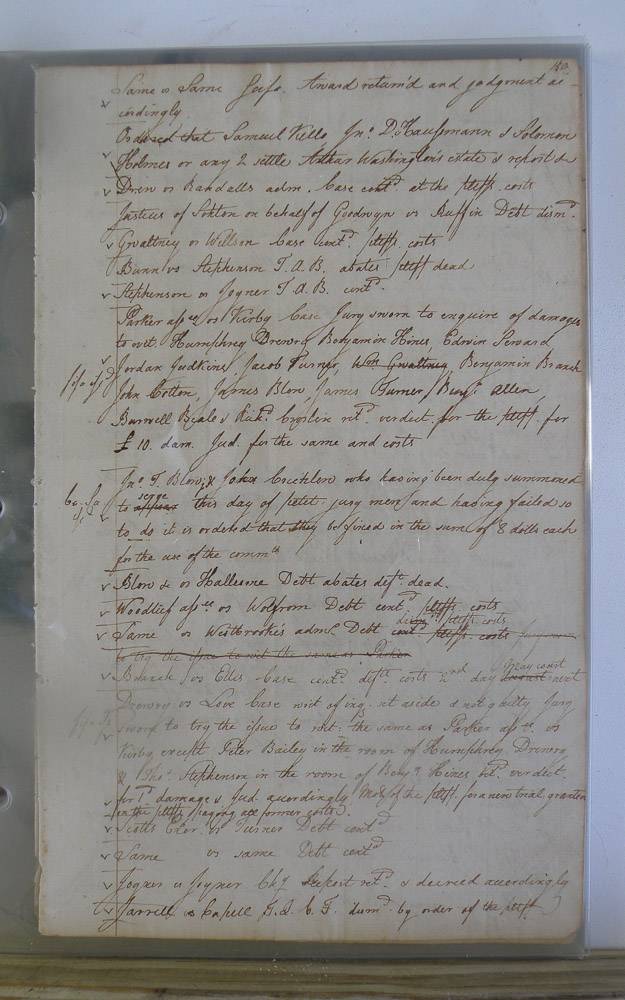 Same vs Same Scifa. Award return'd and judgment ac
cordingly
Ordered that Samuel Kello Jno. D. Haussmann & Solomon
Holmes or any 2 settle Arthur Washington's estate & report &c
Drew vs Randalls adm. Case contd. at the pltffs. costs
Justices of Sohton on behalf of Goodwyn vs Ruffin Debt dismd.
Gwaltney vs Willson Case contd. pltffs. costs
Bunn vs Stephenson T. A. B. abates pltff dead
Stephenson vs Joyner T. A. B. contd.
Parker assee. vs Kirby Case Jury sworn to enquire of damages
to wit. Humphrey Drewry Benjamin Hines, Edwin
Jordan Judkins, Jacob Turner, Wm Gwaltney, Benjamin Branch
John Cotton, James Blow, James Turner, Benjn. Allen,
Burwell Beale & Richd. retd. verdict for the pltff. for
£ 10. dam. Jud. for the same and costs
Jno. T. Blow, & John Crichlow who having been duly summoned
to appear serve this day of petit jury men and having failed so
to do it is ordered that they be fined in the sum of 8 dolls each
for the use of the commth
Blow &c vs Hallesome Debt abates deft. dead.
Woodlief assee vs Wolfrom Debt contd. pltffs. costs
Same vs Westbrooke's adms. Debt contd. pltffs. costs dismd pltffs. costs
to try the issue to wit the same as Parker
Branch vs Ellis Case contd. defts. costs 2nd day August May court next
Drewry vs Love Case writ of inq. set aside & not guilty Jury
sworn to try the issue to wit: the same as Parker assee. vs
Kirby except Peter Bailey in the room of Humphrey Drewry
& Thos. Stephenson in the room of Benjn. Hines retd. verdict
for 1d damage & Jud. accordingly. Mo. of the pltff. for a new trial granted
on the pltffs paying all former costs.
Scotts Exor. vs Turner Debt contd
Same vs same Debt contd
Joyner vs Joyner Chy Report retd. & decreed accordingly
Harrell vs Capell dismd. by order of the pltff